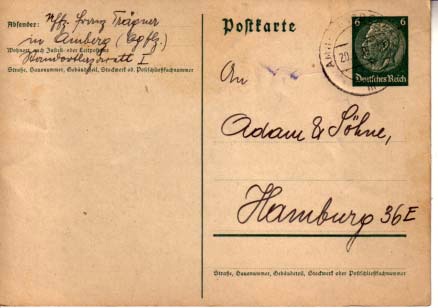 Absender: Uffz. Franz Trägner
in Amberg (Opflz.)
Wohnort, auch Zustell- oder Leitpostamt
I
Straße, Hausnummer, Gebäudeteil, Stockwerk od. Postschließfachnummer
Postkarte
6 6
Deutsches Reich
An
Adam & Söhne,
Hamburg 36 E
Straße, Hausnummer, Gebäudeteil, Stockwerk oder Postschließfachnummer